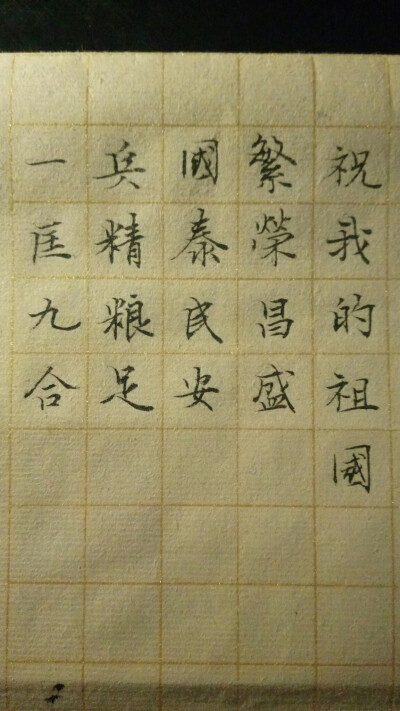 祝我的祖國
繁榮昌盛
國泰民安
兵精粮足
一匡九合